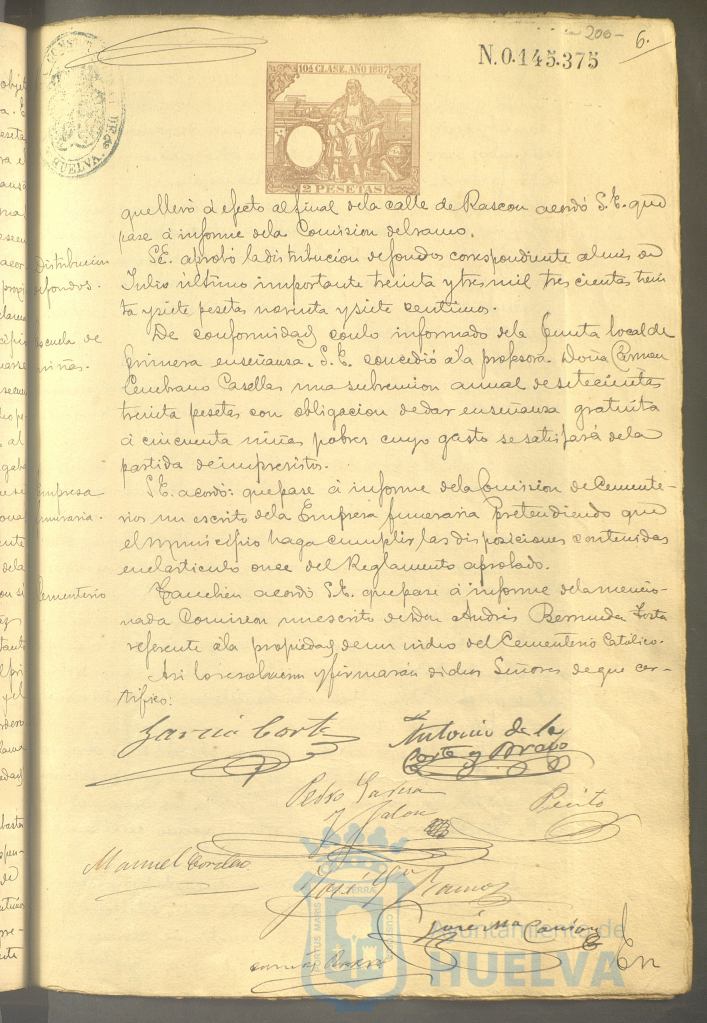 200-
6.
N.0.145.375
CONSTIT
DE
HUELVA.
10ª CLASE, AÑO 1887
2 PESETAS
que llevó á efecto al final dela calle de Rascon acordó S.E. que
pase á informe dela Comision delramo.
Distribucion
defondos.
S.E. aprobó la distribucion defondos correspondiente almes de
Julio último importante treinta ytres mil tres cientas trein
ta ysiete pesetas noventa ysiete centimos.
Escuela de
niñas.
De conformidad conlo informado dela Junta local de
primera enseñansa. S.E. concedió ála profesora Doña Carmen
Casellas una subvencion anual de setecientas
treinta pesetas con obligacion dedar enseñansa gratuita
á cincuenta niñas pobres cuyo gasto sesatisfará dela
partida deimprevistos.
Empresa
funeraria.
S.E. acordó: quepase á informe dela Comision de Cemente-
rios un escrito dela Empresa funeraria pretendiendo que
el municipio haga cumplir las disposiciones contenidas
enelarticulo once del Reglamento aprobado.
Cementerio
Tambien acordó S.E. quepase á informe delamencio-
nada Comision unescrito dedon Andrés Bermudez
referente ála propiedad deun nicho del Cementerio Católico.
Asi lo resolvieron yfirmarán dichos Señores deque cer-
tifico:
Garcia Corte
Antonio de la
Corte y Bravo
Pedro Garcia
y Jalon
Manuel Cordero
José Ramos
José Mª
PORTUS MARIS
TERRAE CUSTODIA
Ayuntamiento de
HUELVA